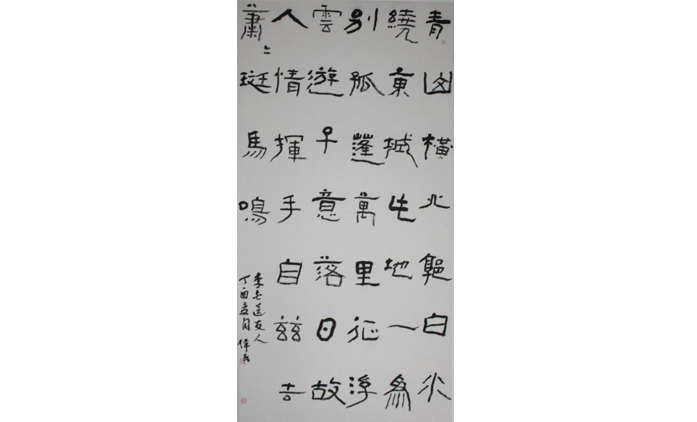 青山橫北郭白水
繞東城此地一為
別孤蓬萬里征浮
雲遊子意落日故
人情揮手自茲去
蕭〻班馬鳴
李白送友人
丁酉夏月